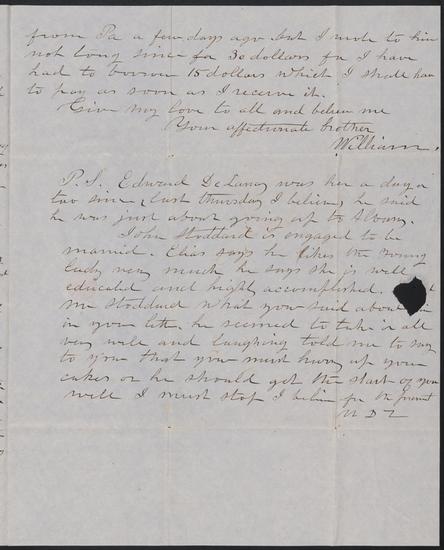 from Pa a few days ago but I wrote to him
not long since for 30 dollars for I have
had to borrow 15 dollars which I shall have
to pay as soon as I receive it.
Give my love to all and believe me
Your affectionate brother
William.
P.S. Edward DeLancy was here a day or
two since, last thursday I believe, he said
he was just about going up to Albany.
John Stoddard is engaged to be
married. Elias says he likes the young
lady very much he says she is well
educated and highly accomplished.
Mr Stoddard what you said about him
in your letter. he seemed to take it all
very well and laughing told me to say
to you that you must hurry up your
cakes or he should get the start of you
well I must stop I believe for the present